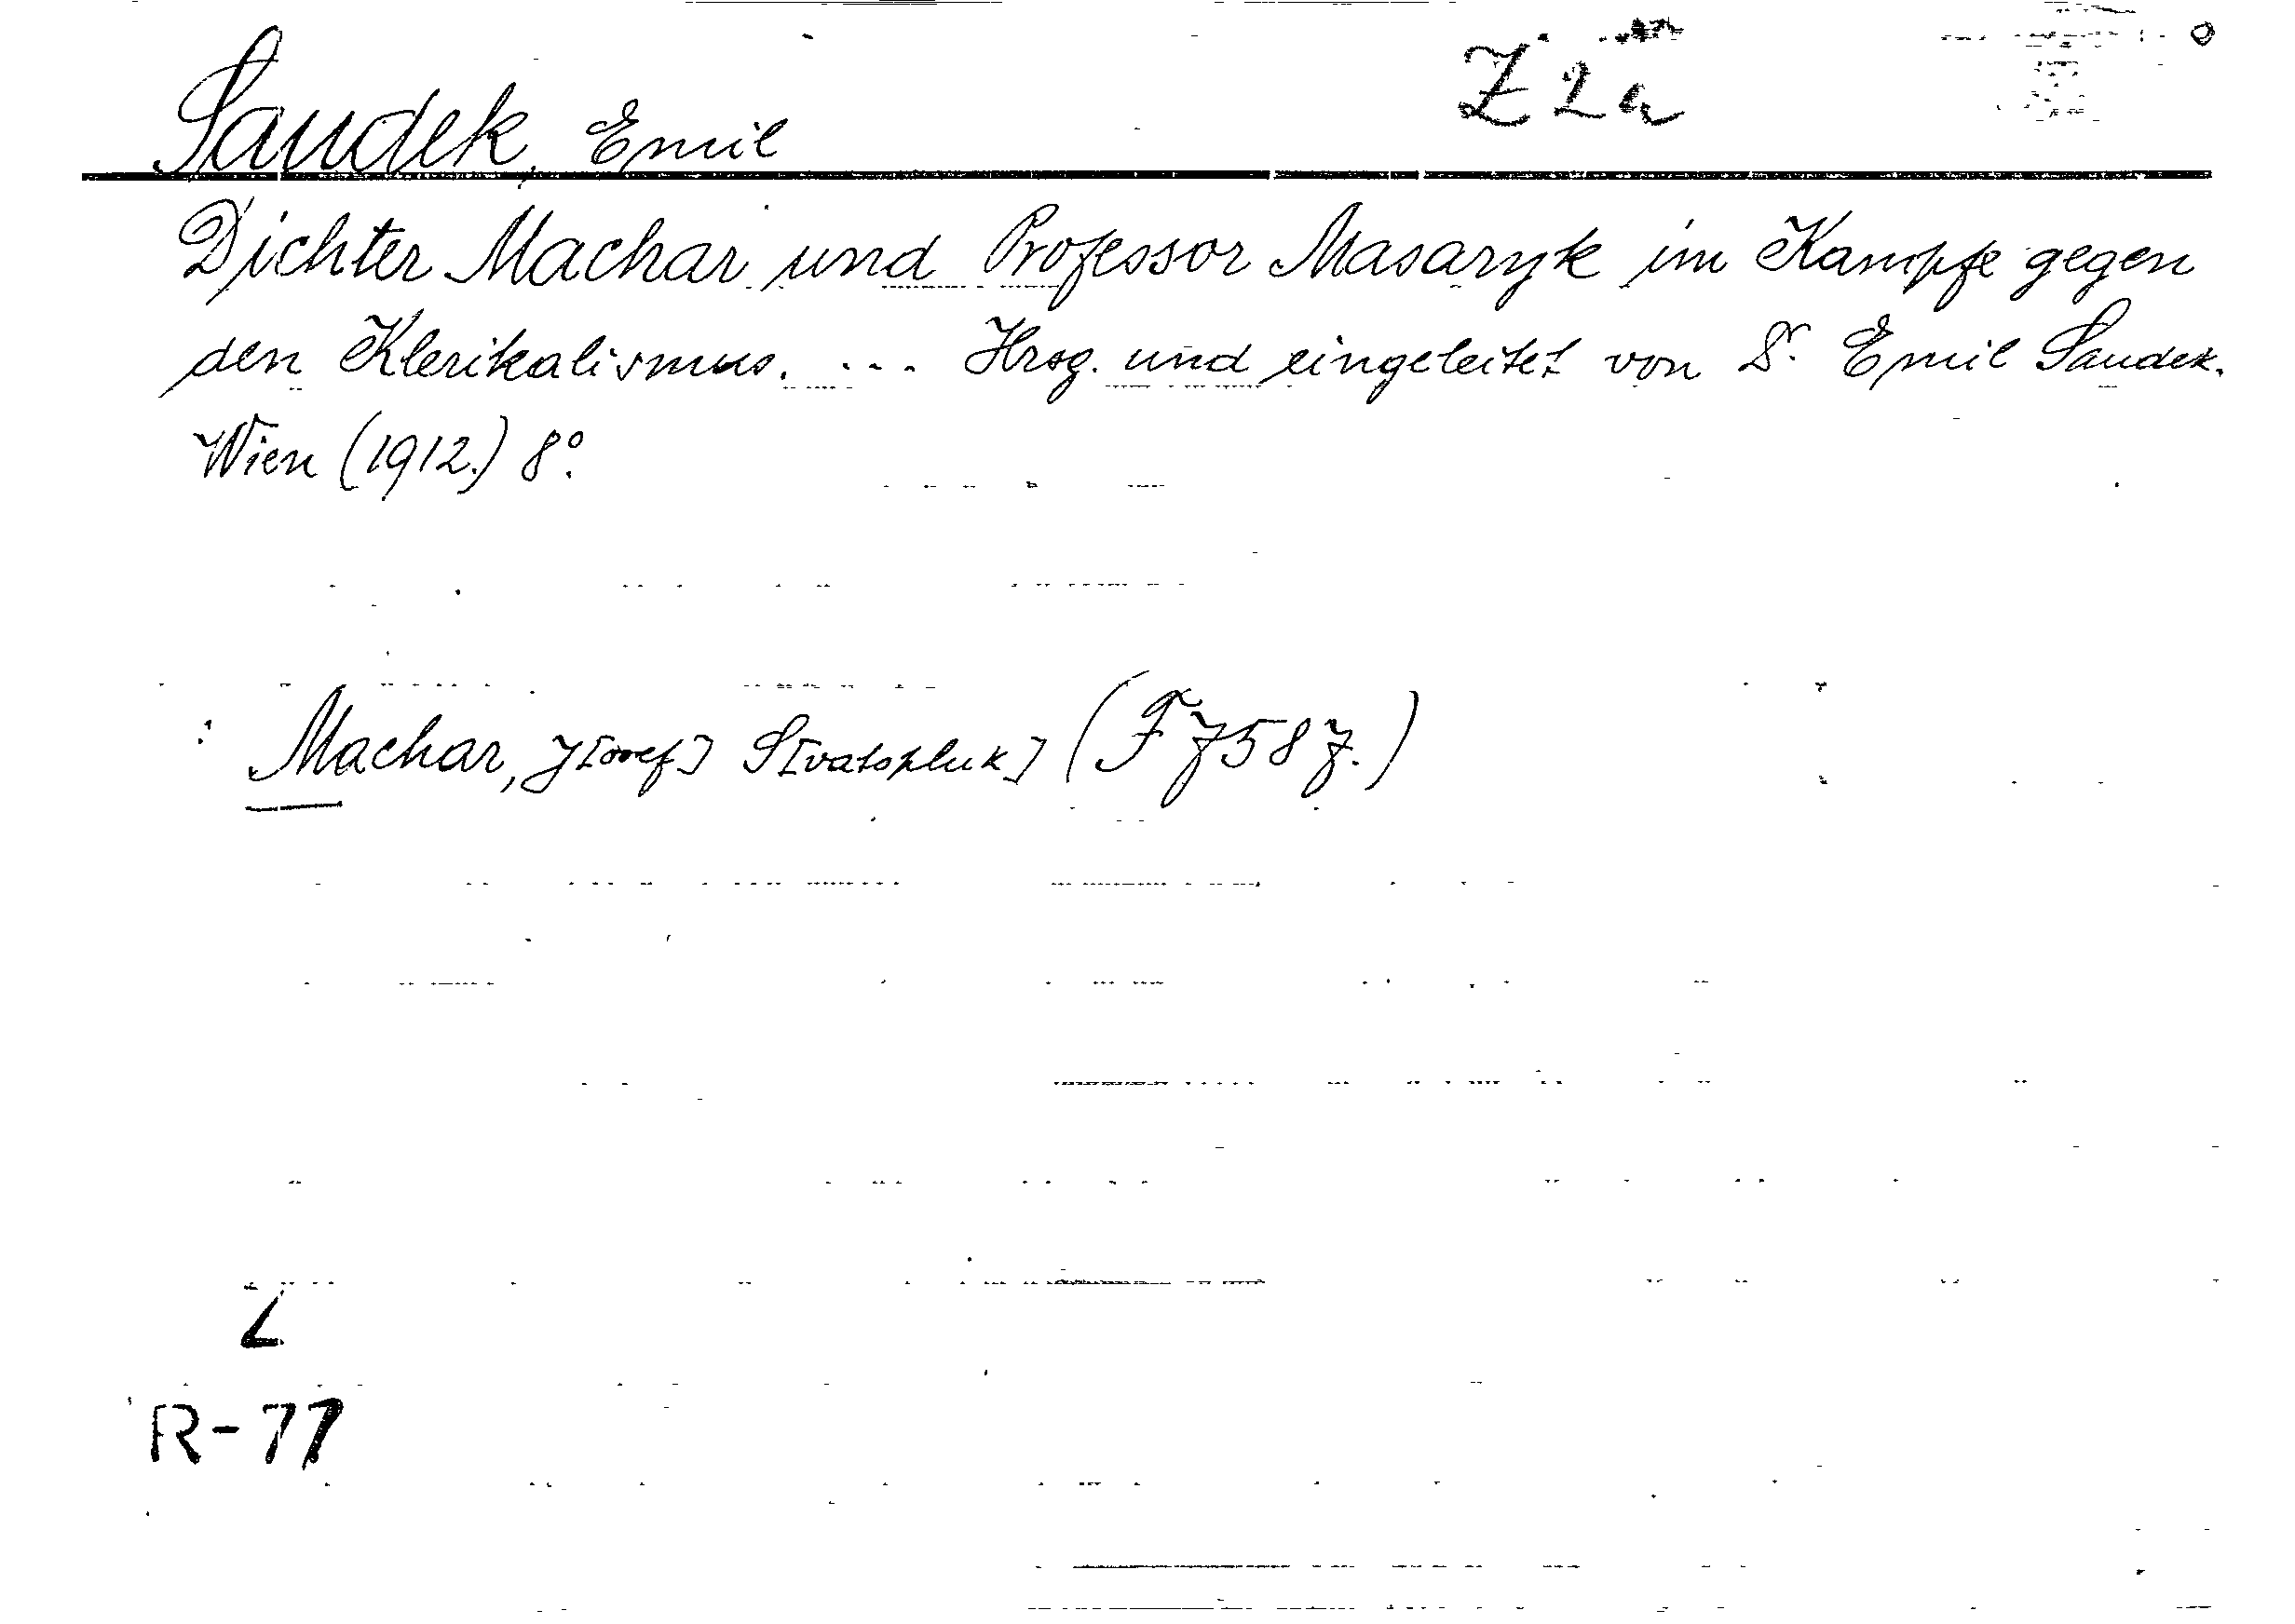 Z 2a
Saudek, Emil
Dichter Machar und Professor Masaryk im Kampfe gegen
den Klerikalismus. ... Hrsg. und eingeleitet von Dr. Emil Saudek.
Wien (1912.) 8°.
: Machar, J[osef] S[vatopluk] (F 7587.)
Z
R-77